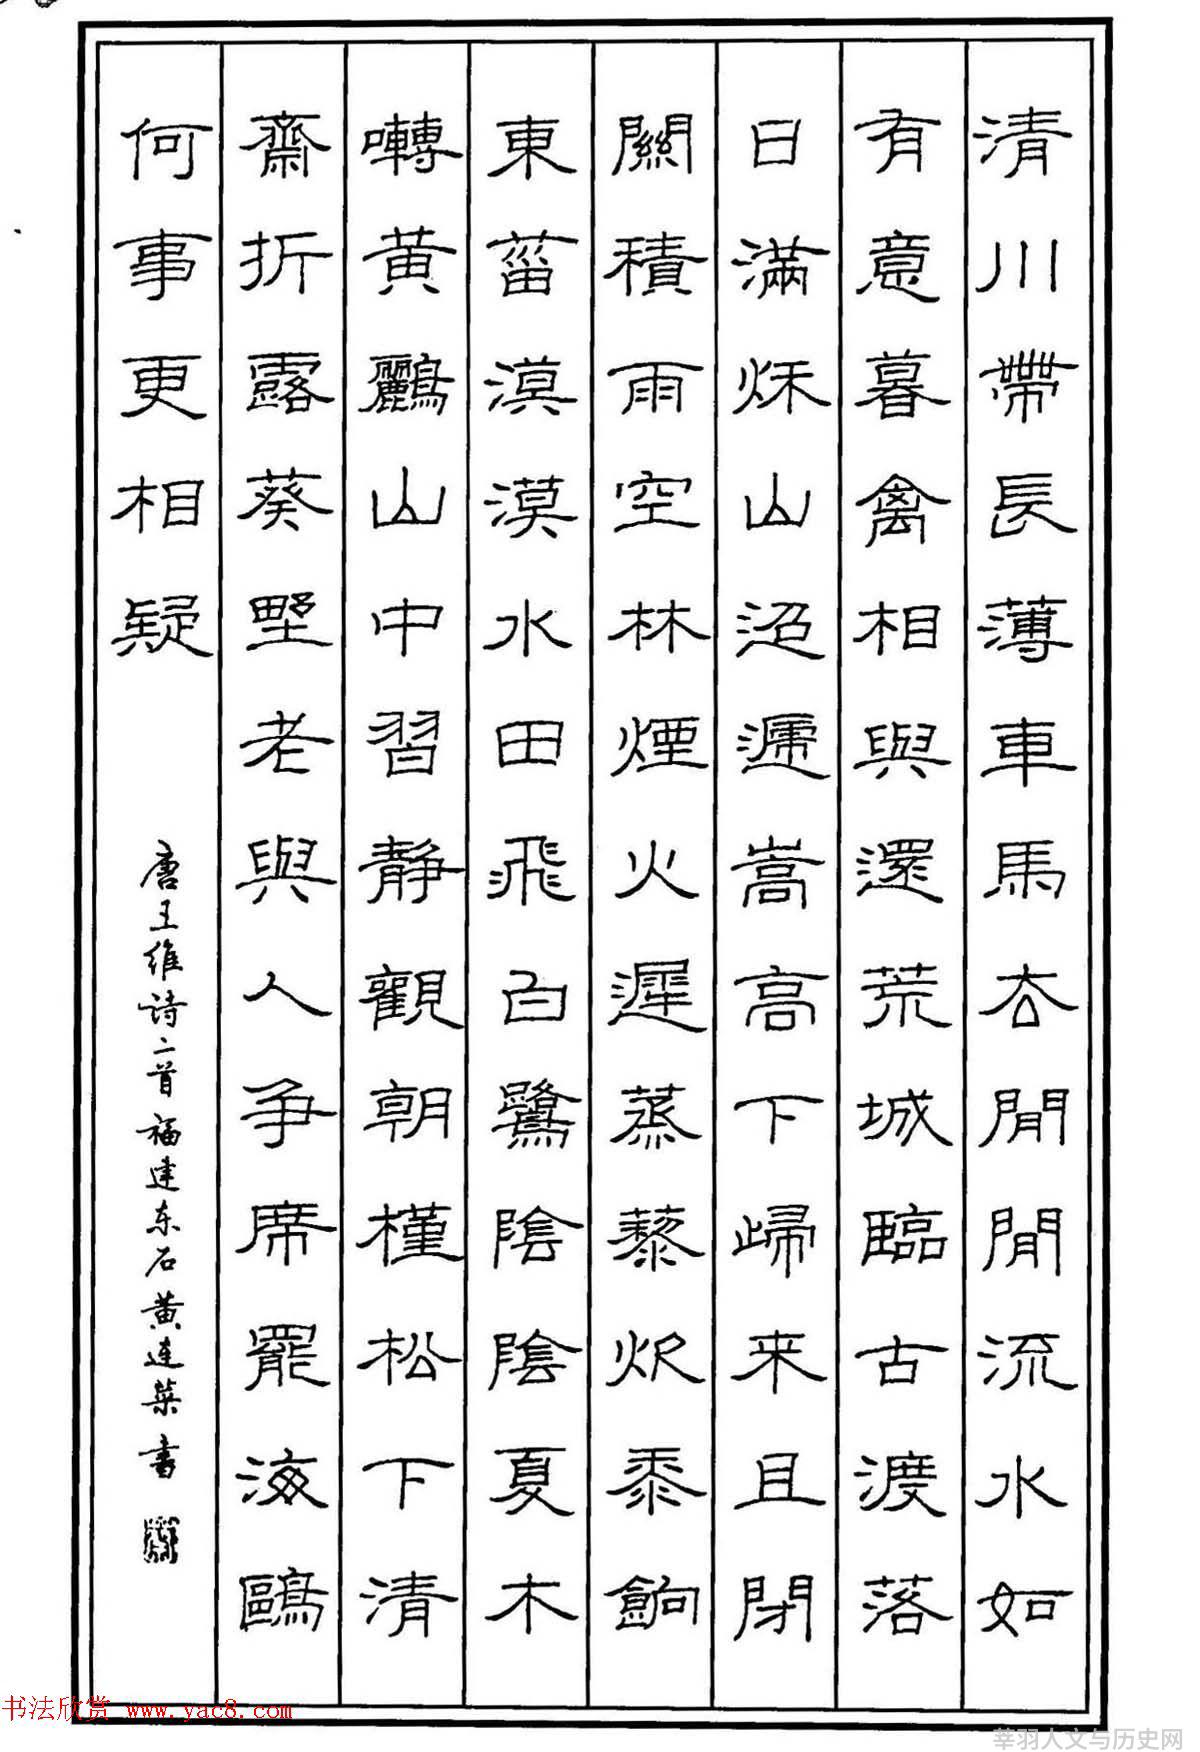 清川帶長薄車馬去閒閒流水如
有意暮禽相與還荒城臨古渡落
日滿秌山迢遞嵩高下歸来且閉
關積雨空林煙火遲蒸藜炊黍餉
東菑漠漠水田飛白鷺陰陰夏木
囀黃鸝山中習靜觀朝槿松下清
齋折露葵野老與人爭席罷海鷗
何事更相疑
唐王维诗二首福建东石黄连荣书
书法欣赏 www.yac8.com
莘羽人文与历史网